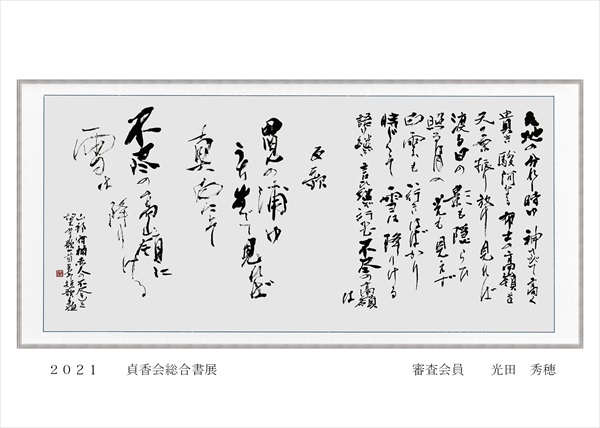 天地の分れし時ゆ神さびて高く
貴き駿河なる布士の高嶺を
天の原振り放け見れば
渡る日の影も隠らひ
照る月の光も見えず
白雲もい行きはばかり
時じくそ雪は降りける
語り継ぎ言ひ継ぎ行かむ不尽の高嶺
は
反歌
田児の浦ゆ
うち出でて見れば
真白にそ
不尽の高嶺に
雪は
降りける
山部宿禰赤人不尽山を
望る歌一首并短歌
２０２１　貞香会総合書展
審査会員　光田　秀穂